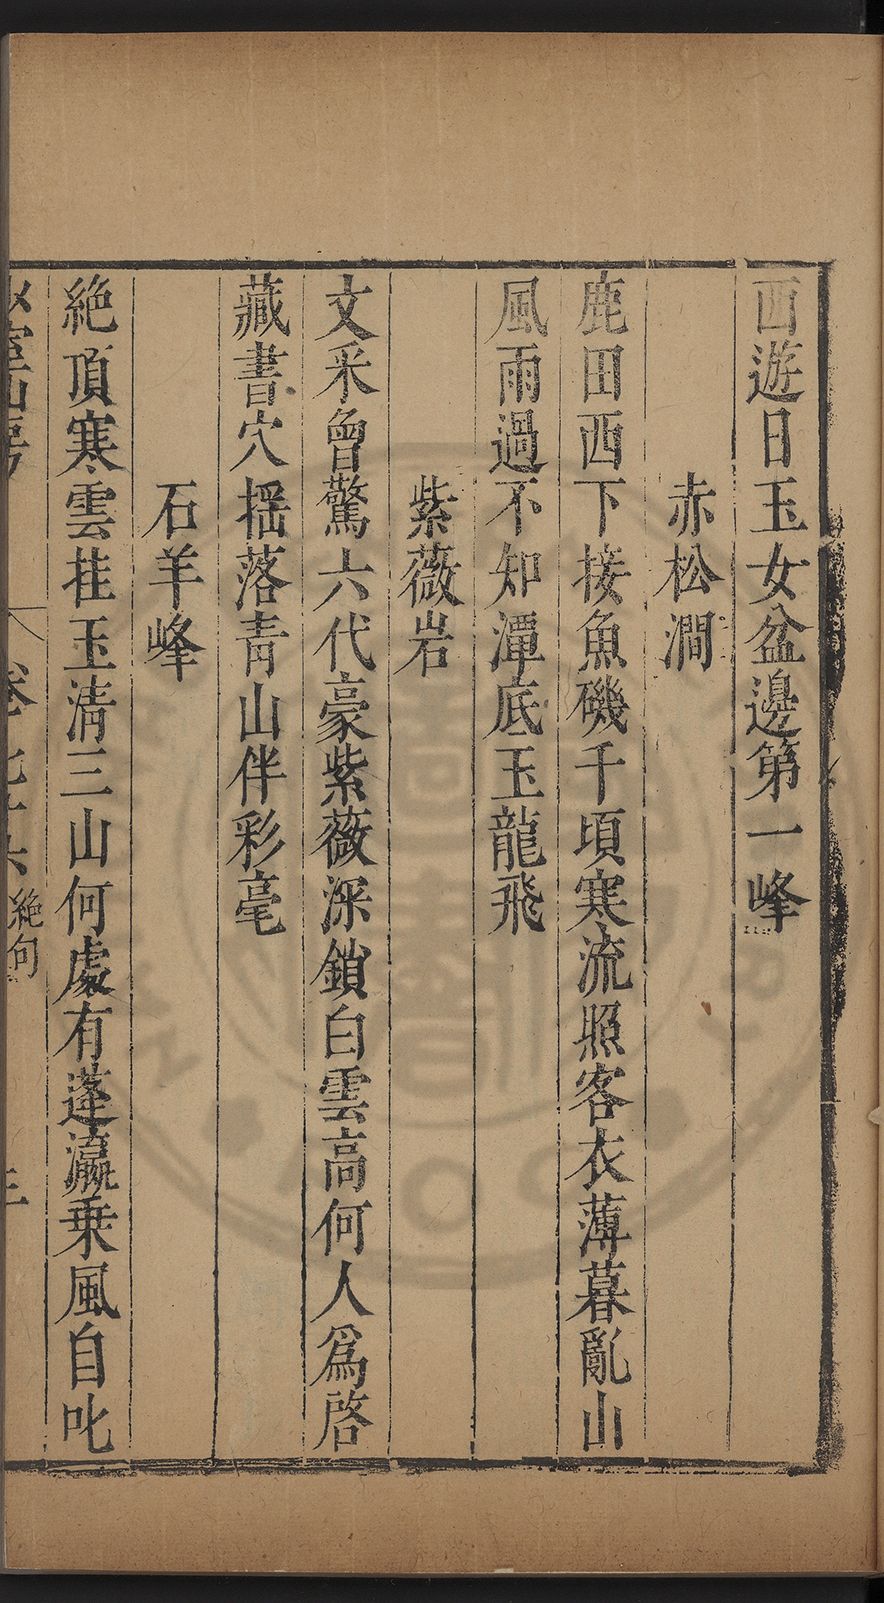 西遊日玉女盆邊第一峰
赤松澗
鹿田西下接魚磯千頃寒流照客衣薄暮亂山
風雨過不知潭底玉龍飛
紫薇岩
文采曾驚六代豪紫薇深鎖白雲高何人爲啓
藏書穴揺落青山伴彩毫
石羊峰
絶頂寒雲挂玉清三山何處有蓬瀛乗風自叱
絶句